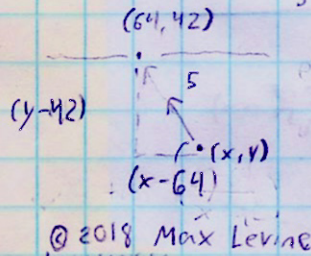 (64,42)
5
(y-42)
(x,y)
(x-64)
© 2018 Max Levine